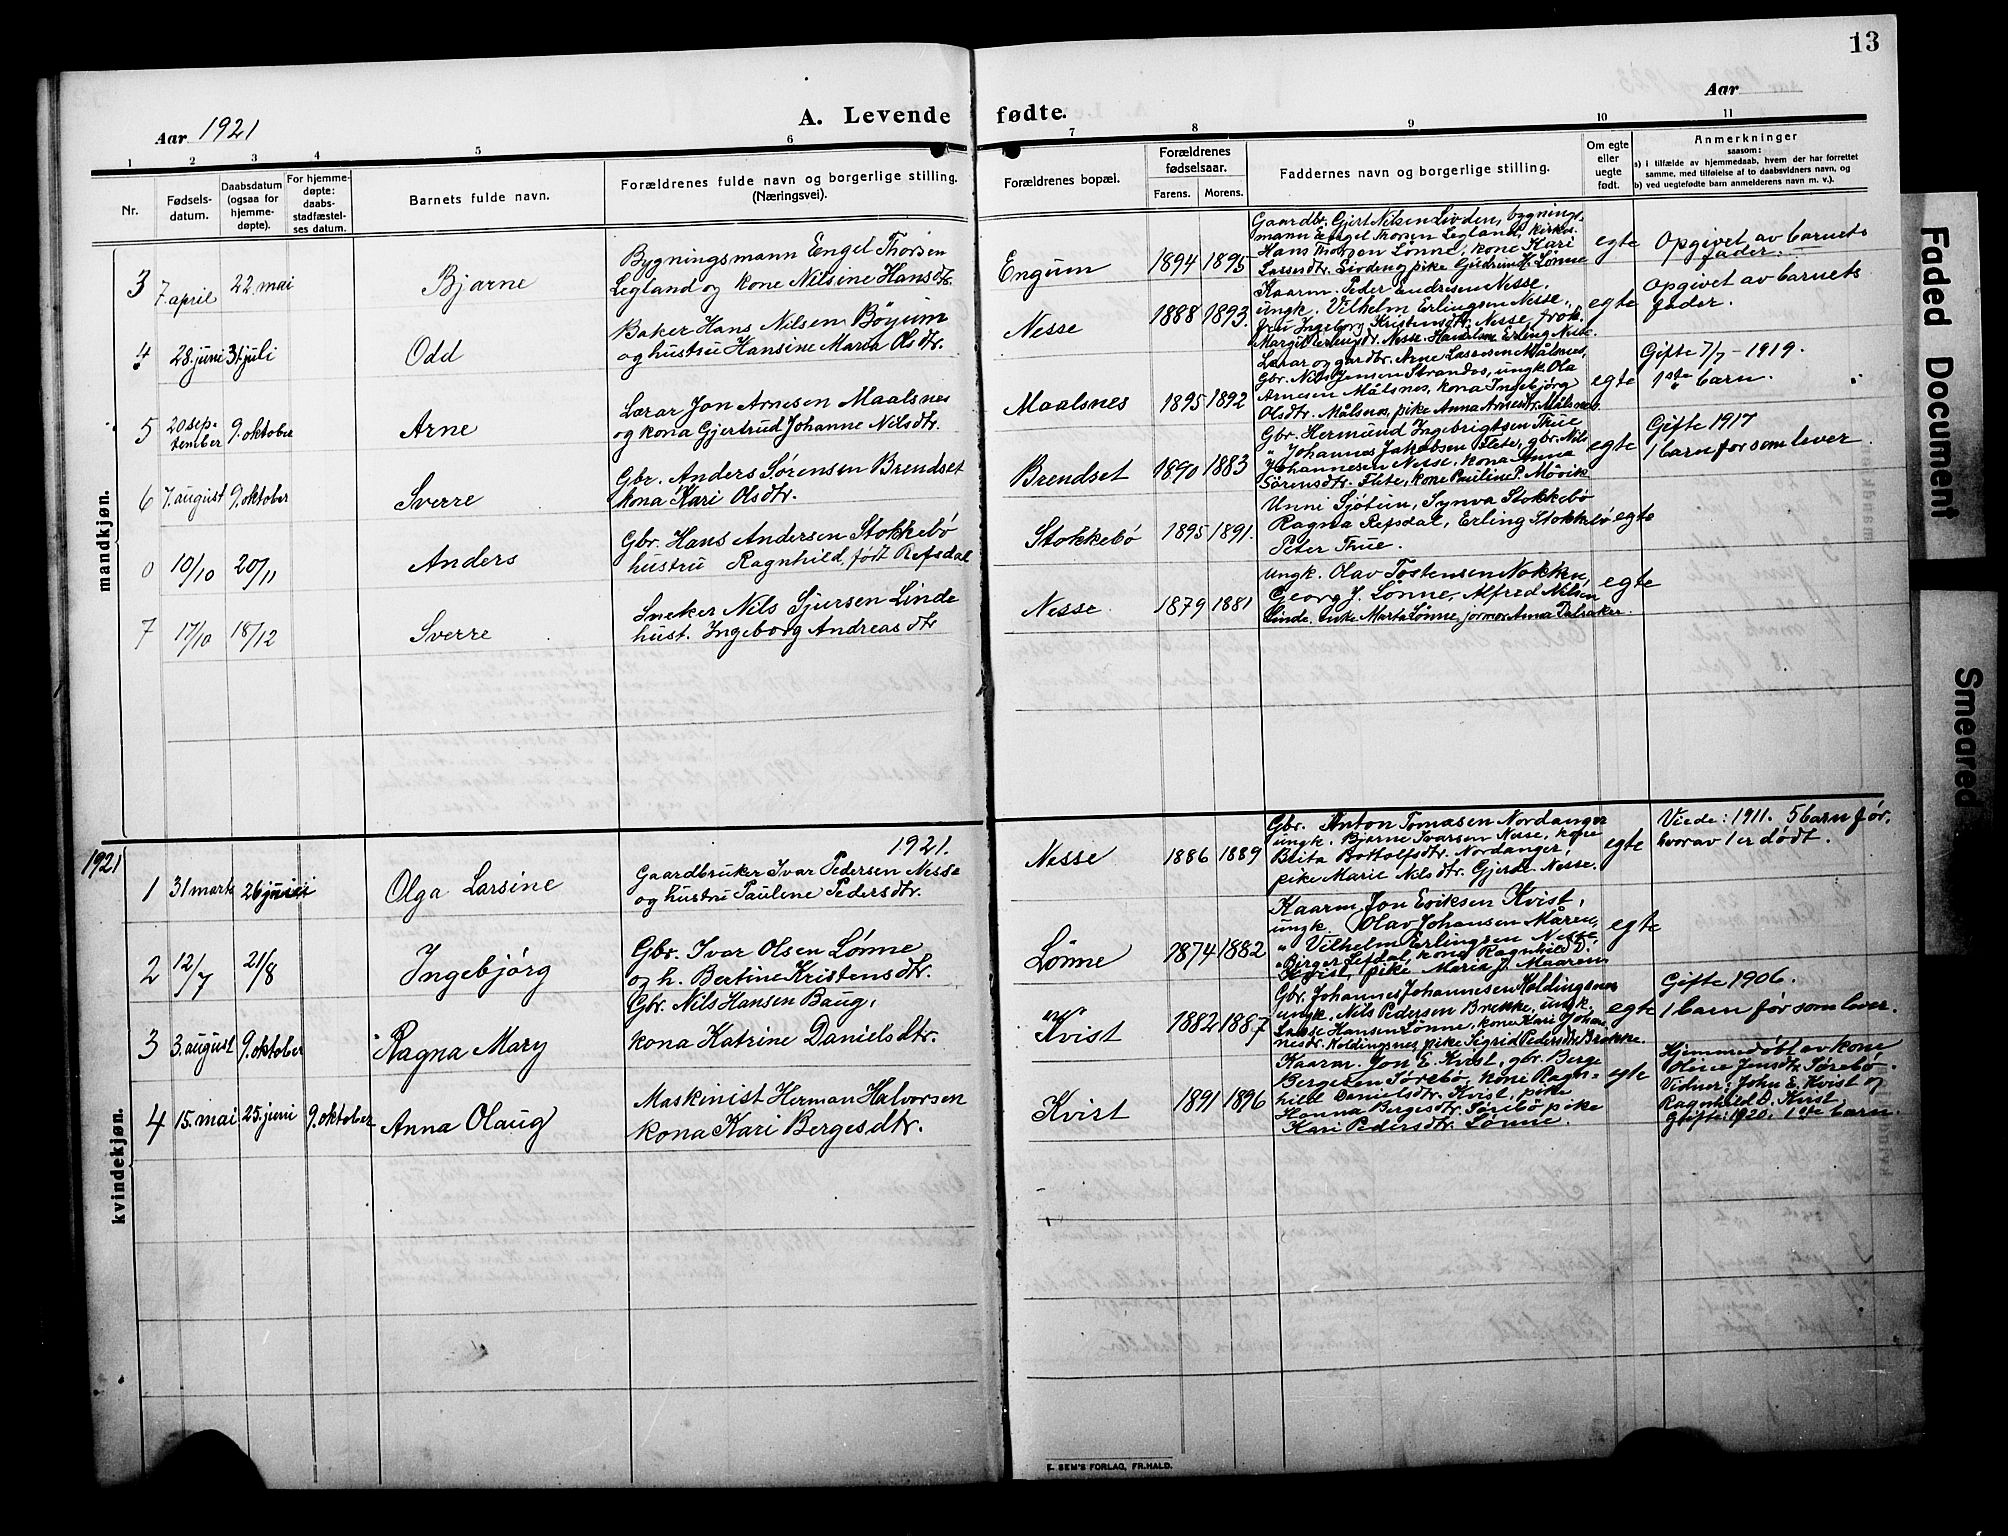 13
Aar 1921
A. Levende fødte.
Aar
1 2 3 4 5 6 7 8 9 10 11
Nr.
Fødsels-
datum.
Daabsdatum
(ogsaa for
hjemme-
døpte).
For hjemme-
døpte:
daabs-
stadfæstel-
ses datum.
Barnets fulde navn.
Forældrenes fulde navn og borgerlige stilling.
(Næringsvei).
Forældrenes bopæl.
Forældrenes
fødselsaar.
Farens. Morens.
Faddernes navn og borgerlige stilling.
Om egte
eller
uegte
født.
Anmerkninger
saasom:
a) i tilfælde av hjemmedaab, hvem der har forrettet
samme, med tilføielse af to daabsvidners navn, og
b) ved uegtefødte barn anmelderens navn m. v.).
mandkjøn.
3 7. april 22. mai Bjarne
Bygningsmann Engel Thorsen
Legland og kone Nilsine Hansdtr.
Engum 1894 1895
Gaardbr. Gjert Nilsen Livden, bygnings-
mann Engel Thorsen Legland,
Hans Thorsen Lønne, kone Kari
Lassesdtr. pike Gudrun H. Lønne
egte
Opgivet av barnets
fader.
4 28. juni 31 juli Odd
Baker Hans Nilsen Böyum
og hustru Hansine Maria Olsdtr.
Nesse 1888 1893.
Kaarm. Peder Andresen Nesse,
ungk. Vilhelm Erlingsen Nesse,
fru Ingeborg Kristensdtr. Nesse, frøk.
Margit Erlingsdtr. Nesse. Erling Nesse.
egte
Opgivet av barnets
fader.
5 20 sep-
tember 9. oktober Arne
Lærar Jon Arnesen Maalsnes
og kona Gjertrud Johanne Nilsdtr.
Maalsnes 1895 1892
Lærar og gardbr. Arne Lassesen Målsnes,
Gbr. Nils Jensen Strandos, ungk. Ola
Arnesen Målsnes, kona Ingebjørg
Olsdtr. Målsnes, pike Anna Arnesdtr. Målsnes.
egte
Gifte 7/7 - 1919.
1ste barn.
6 7. august 9. oktober Sverre
Gbr. Anders Sørensen Brendset
kona Kari Olsdtr.
Brendset 1890 1883
Gbr. Hermund Ingebrigtsen Thue
" Johannes Jakobsen Flete, gbr. Nils
Johannesen Nesse, kona Anna
Sørensdtr. Flete, kone Pauline P. Mövik
egte
Gifte 1917
1 barn før som lever
0 10/10 20/11 Anders
Gbr. Hans Andersen Stokkebö
hustru Ragnhild, født Refsdal
Stokkebö 1895 1891.
Unni Sjötun, Synva Stokkebö
Ragna Refsdal, Erling Stokkebö
Peter Thue.
egte
7 17/10 18/12 Sverre
Sneker Nils Sjursen Linde
hust. Ingeborg Andreasdtr
Nesse. 1879 1881
ungk. Olav Tostensen Nokken,
Georg J. Lønne, Alfred Nilsen
Linde. enke Marta Lønne, jormor Anna Dalsaker.
egte
kvindekjøn.
1921 1921.
1 31 mars 26 juni Olga Larsine
Gaardbruker Ivar Pedersen Nesse
og hustru Pauline Pedersdtr.
Nesse 1886 1889
Gbr. Anton Tomasen Nordanger
ungk. Bjarne Ivarsen Nesse, kone
Brita Bottolfsdtr. Nordanger,
pike Marie Nilsdtr. Gjerde Nesse.
egte
Viede: 1911. 5 barn før,
hvorav 1 er dødt.
2 12/7 21/8 Ingebjörg
Gbr. Ivar Olsen Lønne
og h. Bertine Kristensdtr.
Lønne 1874 1882
Kaarm. Jon Eriksen Kvist,
ungk. Olav Johansen Måren,
" Vilhelm Erlingsen Nesse
" Birger Refsdal, kona Ragnhild D.
Kvist, pike Maria J. Maaren.
egte
3 3. august 9. oktober Ragna Mary
Gbr. Nils Hansen Baug,
kona Katrine Danielsdtr.
Kvist 1882 1887
Gbr. Johannes Johannesen Koldingsnes
ungk. Nils Pedersen Brekke, ungk.
Lasse Hansen Lønne, kona Kari Johan-
nesdtr. Koldingsnes, pike Sigrid Pedersdtr. Brekke.
egte
Gifte 1906.
1 barn før som lever.
4 15. mai 25. juni 9. oktober Anna Olaug
Maskinist Herman Halvorsen
kona Kari Bergesdtr.
Kvist 1891 1896
Kaarm. Jon E. Kvist, gbr. Berge
Bergesen Sørebø, kone Ragn-
hild Danielsdtr. Kvist, pike
Hanna Bergesdtr. Sørebø pike
Kari Pedersdtr. Lønne.
egte
Hjemmedøbt av kone
Jensdtr. Sørebø.
Vidner: John E. Kvist og
Ragnhild D. Kvist.
Gifte: 1920. 1ste barn.
E. SEM'S FORLAG, FR.HALD.
Faded Document
Smeared